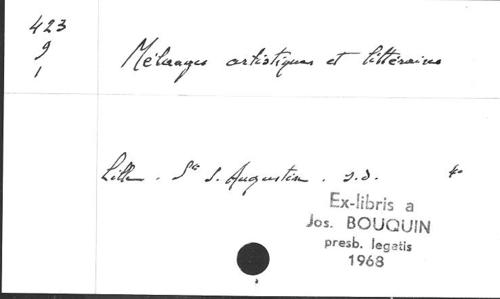 423
9
1
Mélanges artistiques et littéraires
Lille. Sté S. Augustin. s.d. 4o
Ex-libris a
Jos. BOUQUIN
presb. legatis
1968